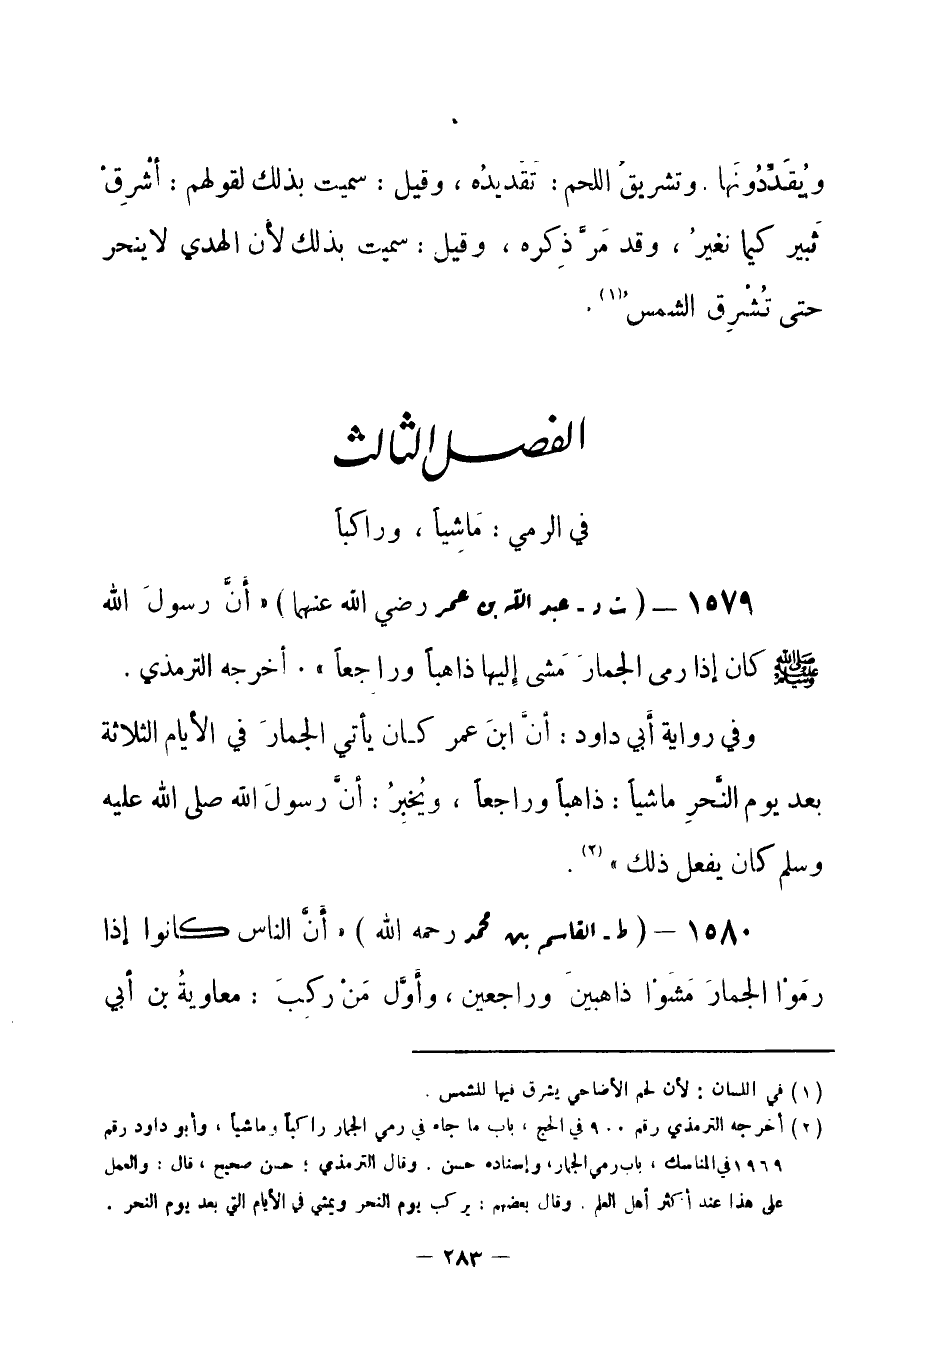 ويُقَدِّدُونَها . وتشريقُ اللحم : تَقديدُه ، وقيل : سميت بذلك لقولهم : أشْرِقْ
ثَبير كيما نغير ُ ، وقد مَرَّ ذِكره ، وقيل : سميت بذلك لأن الهدي لاينحر
حتى تُشْرِق الشمسُ(١) .
الفصل الثالث
في الرمي : مَاشِياً ، وراكباً
١٥٧٩ – ( ت د - عبد الله بن عمر رضي الله عنهما ) « أنَّ رسولَ الله
ﷺ كان إذا رمى الجمارَ مَشى إليها ذاهباً وراجعاً » . أخرجه الترمذي .
وفي رواية أبي داود : أنَّ ابنَ عمر كان يأتي الجمارَ في الأيام الثلاثة
بعد يوم النَّحرِ ماشياً : ذاهباً وراجعاً ، ويُخبِرُ : أنَّ رسولَ الله صلى الله عليه
وسلم كان يفعل ذلك » (٢) .
١٥٨٠ – ( ط - القاسم بن محمد رحمه الله ) « أنَّ الناس كانوا إذا
رمَوْا الجمارَ مَشَوْا ذاهبينَ وراجعين ، وأوَّل مَنْ ركِبَ : معاويةُ بن أبي
(١) في اللسان : لأن لحم الأضاحي يشرق فيها للشمس .
(٢) أخرجه الترمذي رقم ٩٠٠ في الحج ، باب ما جاء في رمي الجمار راكباً وماشياً ، وأبو داود رقم
١٩٦٩ في المناسك ، باب رمي الجمار، وإسناده حسن . وقال الترمذي : حسن صحيح ، قال : والعمل
على هذا عند أكثر أهل العلم . وقال بعضهم : يركب يوم النحر ويمشي في الأيام التي بعد يوم النحر .
– ٢٨٣ –